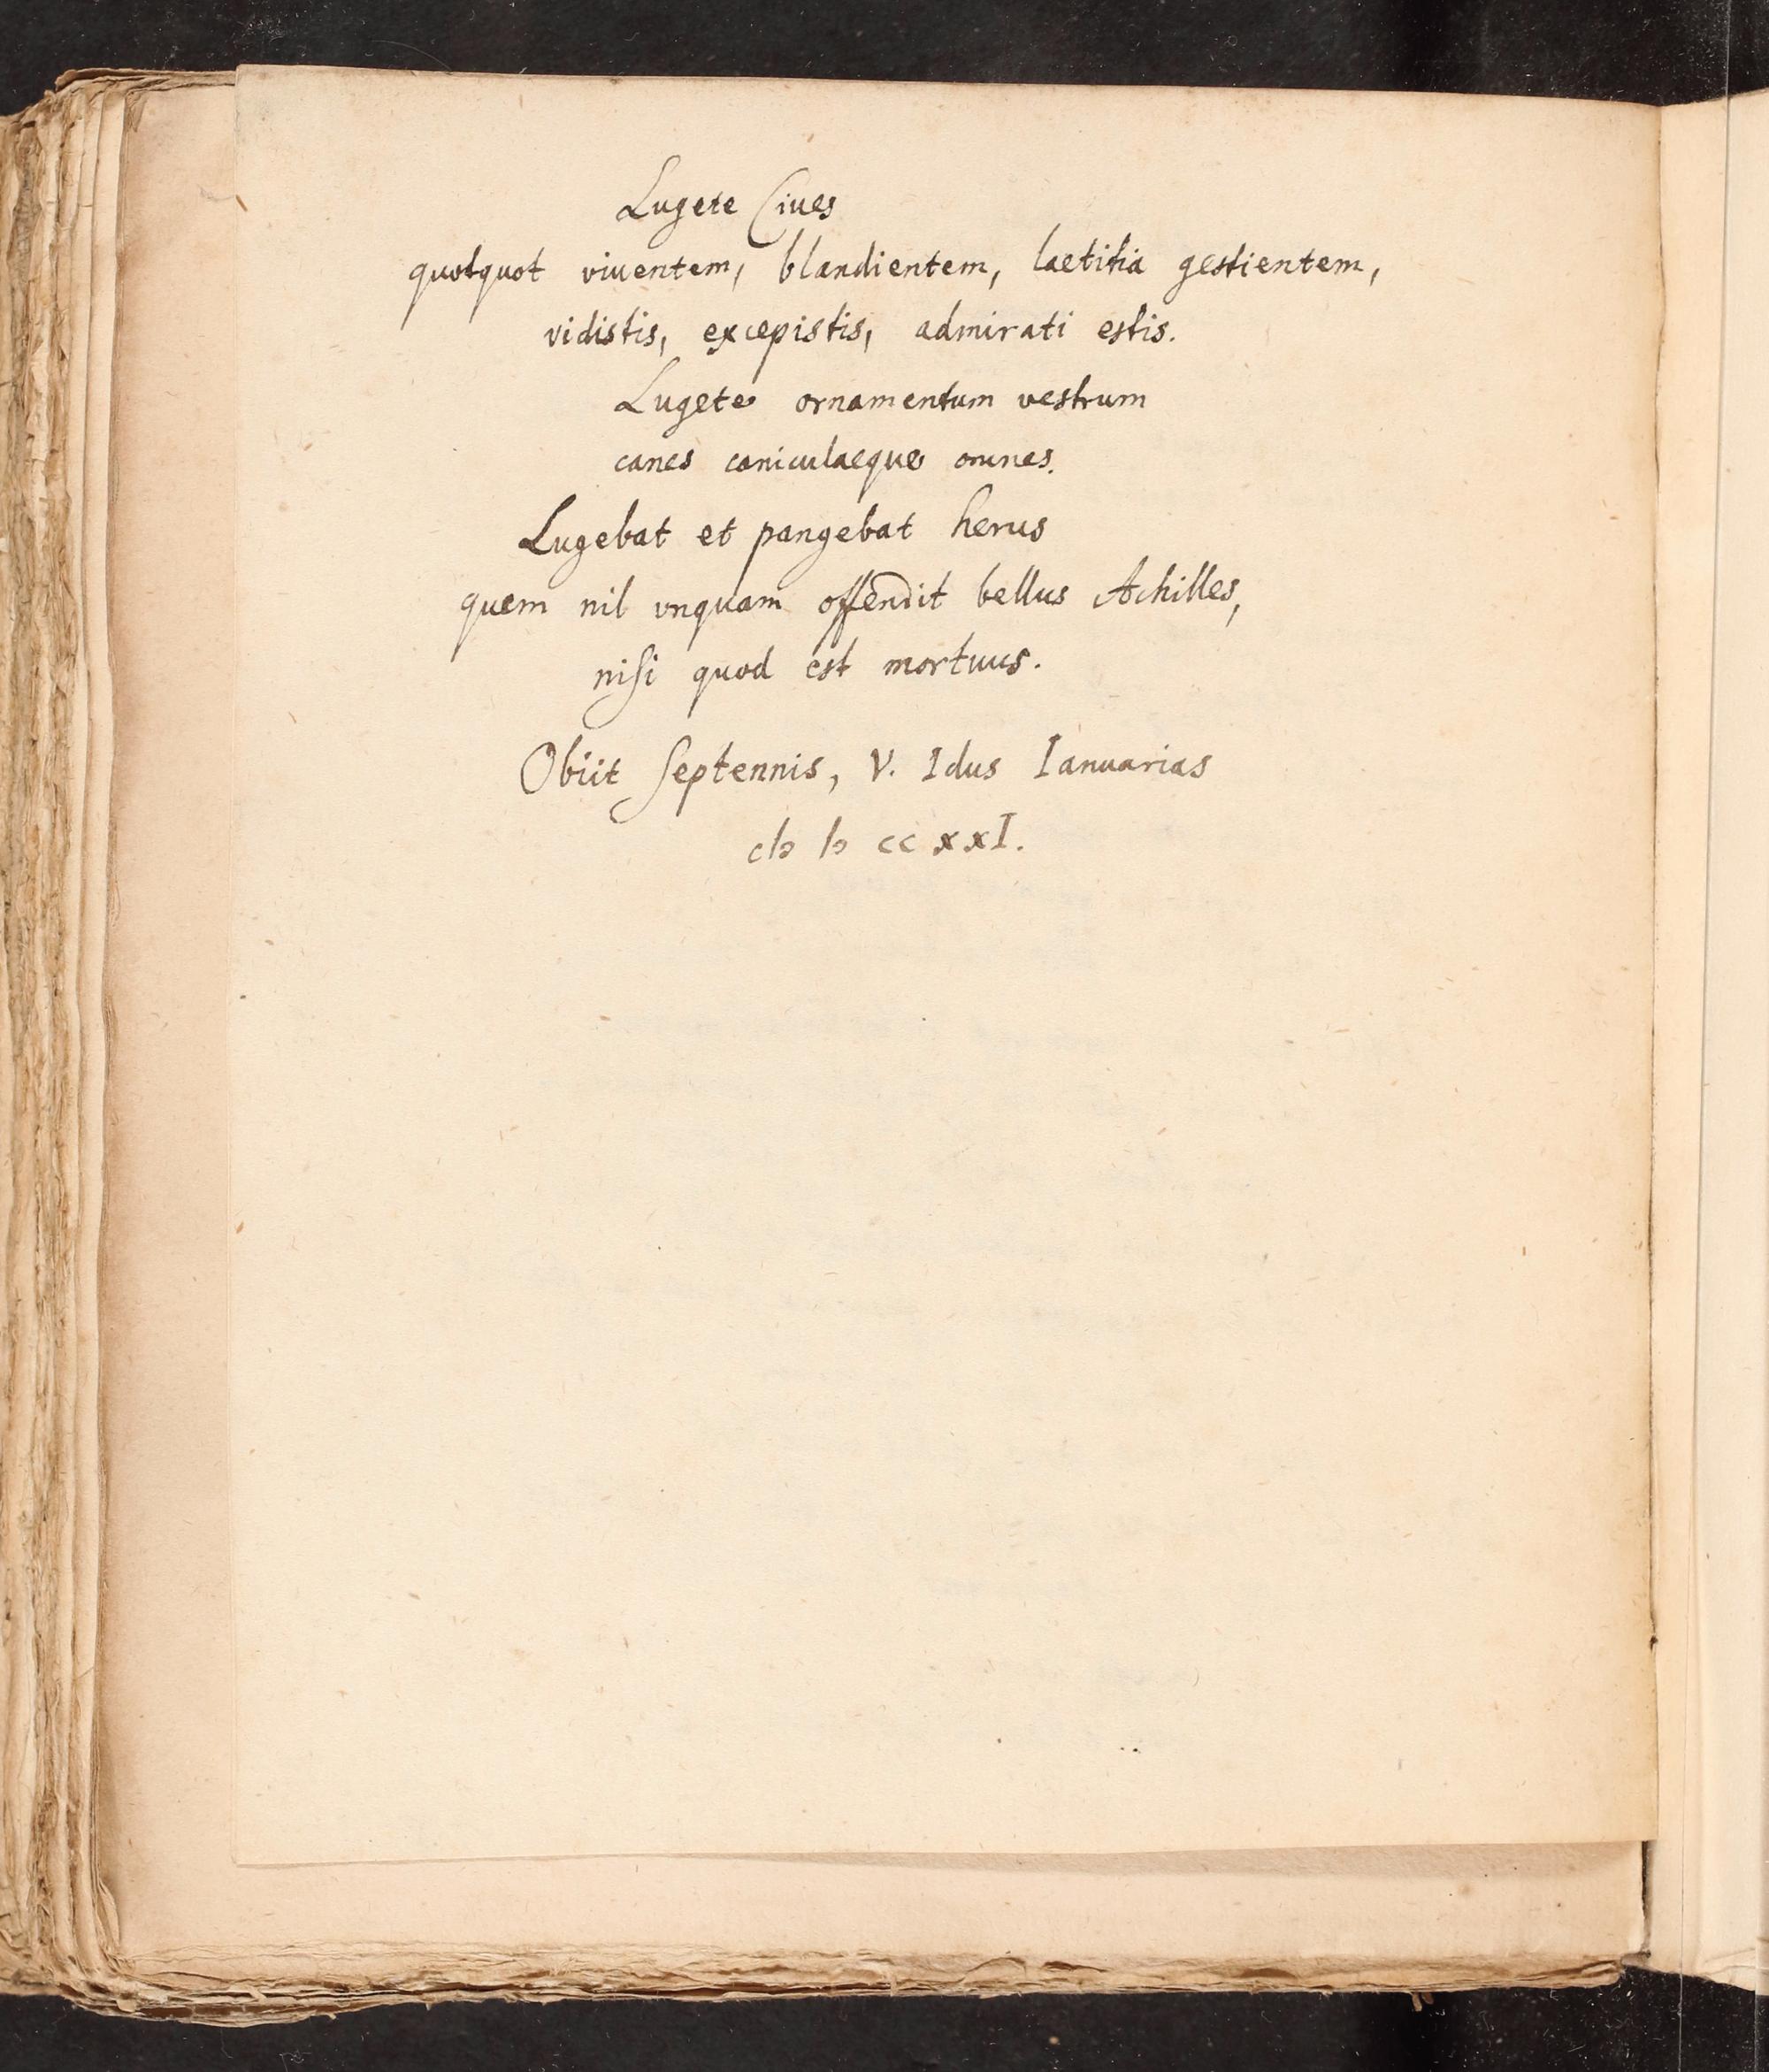 Lugete Ciues
quotquot viuentem, blandientem, laetitia gestientem,
vidistis, excepistis, admirati estis.
Lugete ornamentum vestrum
canes caniculaeque omnes.
Lugebat et pangebat herus
quem nil vnquam offendit bellus Achilles,
niſi quod est mortuus.
Obiit ſeptennis, V. Idus Ianuarias
cIↄ Iↄ cc xxI.